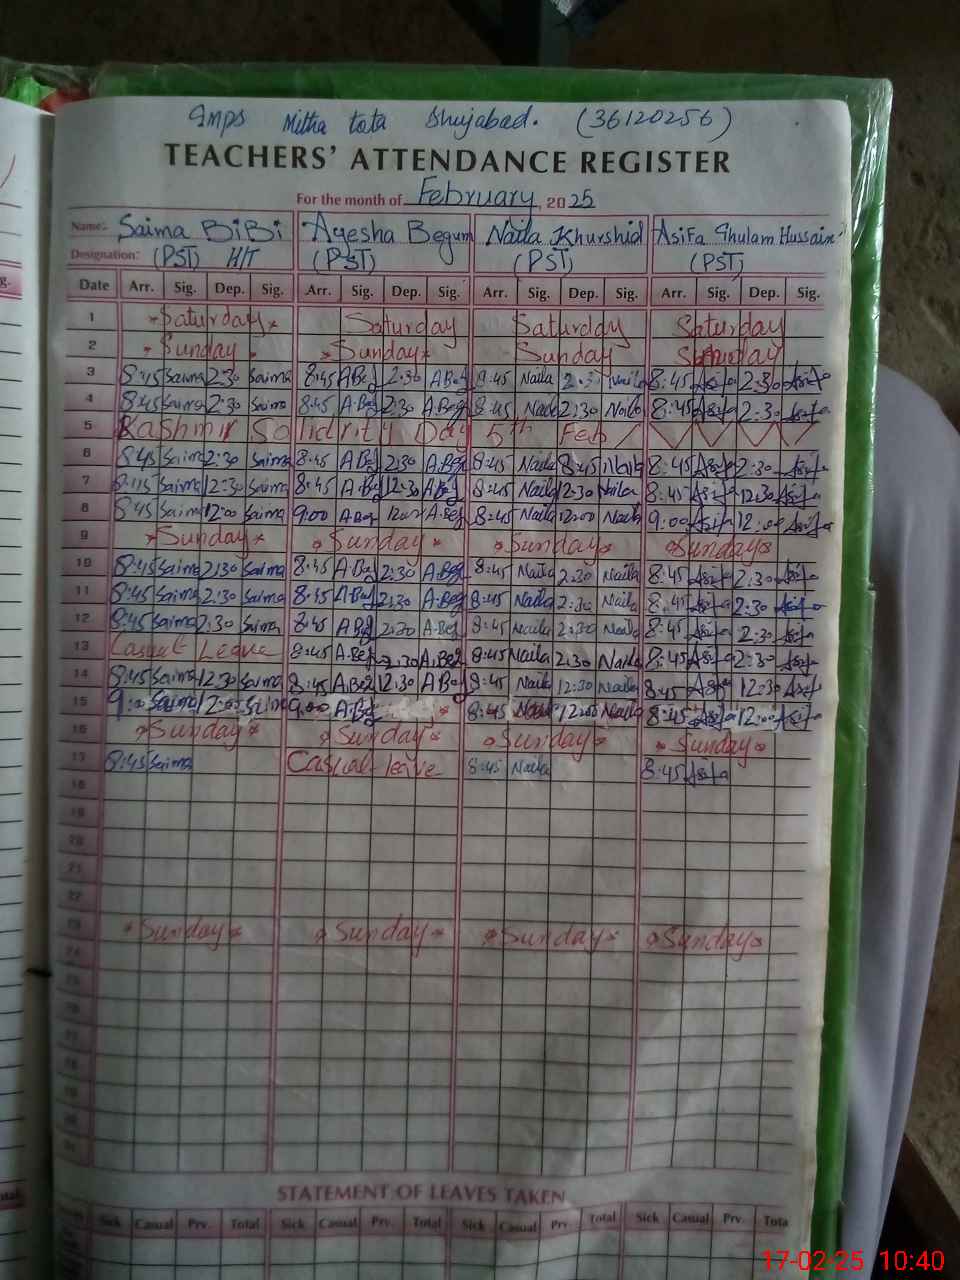 GMPS Mitha tota Shujabad. (36120256)
TEACHERS' ATTENDANCE REGISTER
For the month of February, 2025
Name: Saima BiBi Ayesha Begum Naila Khurshid Asifa Ghulam Hussain
Designation: (PST) H/T (PST) (PST) (PST)
Date Arr. Sig. Dep. Sig. Arr. Sig. Dep. Sig. Arr. Sig. Dep. Sig. Arr. Sig. Dep. Sig.
1 Saturday Saturday Saturday Saturday
2 Sunday Sunday Sunday Sunday
3 8:45 Saima 2:30 Saima 8:45 A.Beg 2:30 A.Beg 8:45 Naila 2:30 Naila 8:45 Asifa 2:30 Asifa
4 8:45 Saima 2:30 Saima 8:45 A.Beg 2:30 A.Beg 8:45 Naila 2:30 Naila 8:45 Asifa 2:30 Asifa
5 Kashmir Solidrity Day 5th Feb
6 8:45 Saima 2:30 Saima 8:45 A.Beg 2:30 A.Beg 8:45 Naila 8:45 Naila 8:45 Asifa 2:30 Asifa
7 Saima 12:30 Saima 8:45 A.Beg 12:30 A.Beg 8:45 Naila 12:30 Naila 8:45 Asifa 12:30 Asifa
8 8:45 Saima 12:00 Saima 9:00 A.Beg 12:00 A.Beg 8:45 Naila 12:00 Naila 9:00 Asifa 12:00 Asifa
9 Sunday Sunday Sunday Sunday
10 8:45 Saima 2:30 Saima 8:45 A.Beg 2:30 A.Beg 8:45 Naila 2:30 Naila 8:45 Asifa 2:30 Asifa
11 8:45 Saima 2:30 Saima 8:45 A.Beg 2:30 A.Beg 8:45 Naila 2:30 Naila 8:45 Asifa 2:30 Asifa
12 8:45 Saima 2:30 Saima 8:45 A.Beg 2:30 A.Beg 8:45 Naila 2:30 Naila 8:45 Asifa 2:30 Asifa
13 Casual Leave 8:45 A.Beg 2:30 A.Beg 8:45 Naila 2:30 Naila 8:45 Asifa 2:30 Asifa
14 8:45 Saima 12:30 Saima 8:45 A.Beg 12:30 A.Beg 8:45 Naila 12:30 Naila 8:45 Asifa 12:30 Asifa
15 Saima 12:00 Saima 9:00 A.Beg 8:45 Naila 12:00 Naila 8:45 Asifa 12:00 Asifa
16 Sunday Sunday Sunday Sunday
17 8:45 Saima Casual leave 8:45 Naila 8:45 Asifa
18
19
20
21
22
23 Sunday Sunday Sunday Sunday
24
25
26
27
28
STATEMENT OF LEAVES TAKEN
Sick Casual Prv. Total Sick Casual Prv. Total Sick Casual Prv. Total Sick Casual Prv. Tota
17-02-25 10:40